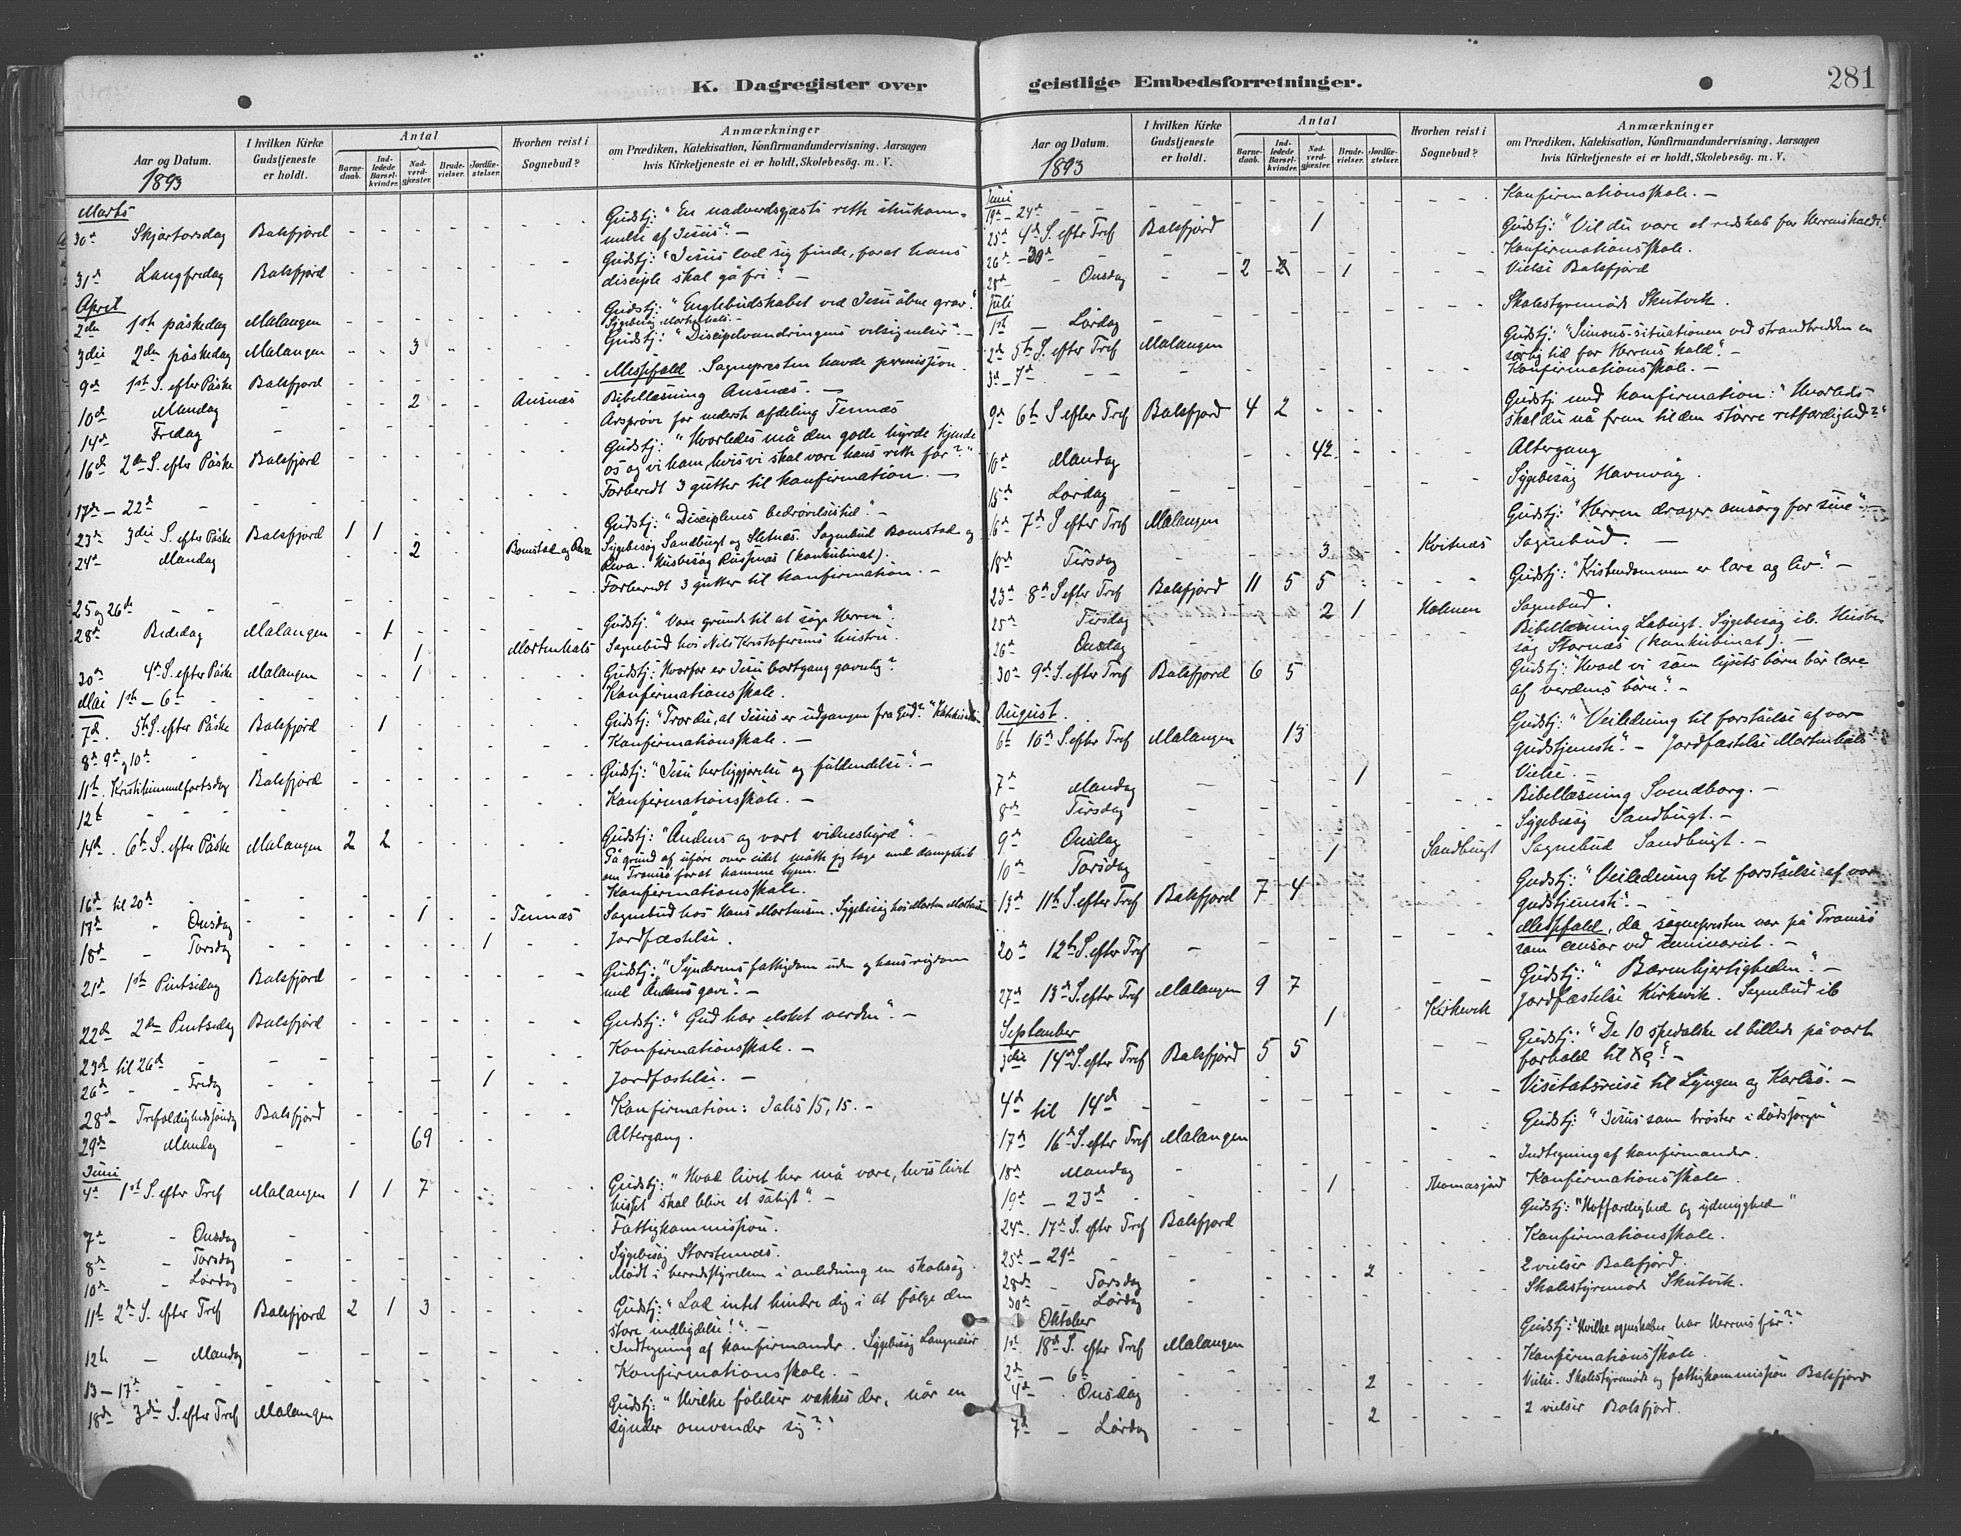 K. Dagregister over
Aar og Datum.
1893
I hvilken Kirke Gudstjeneste er holdt.
Antal
Barne-daab.
Ind-ledede Barsel-kvinder.
Nad-verd-gjæster.
Brude-vielser.
Jordfæ-stelser.
Hvorhen reist i Sognebud?
Anmærkninger
om Prædiken, Katekisation, Konfirmandundervisning, Aarsagen
hvis Kirketjeneste ei er holdt, Skolebesøg. m. V.
Marts
30te Skjærtorsdag Balsfjord - - - - - - Gudstj: "En nadverdsgjæsts rette ihukom-
melse af Jesus". -
31te Langfredag Balsfjord - - - - - - Gudstj: "Jesus lod sig finde, forat hans
disciple skal gå fri". -
April
2den 1ste påskedag Malangen - - - - - - Gudstj: "Englebudskabet ved Jesu åbne grav".
Sygebesøg Mortenhals.
3die 2den påskedag Malangen - - 3 - - - Gudstj: "Discipelvandringens velsignelser". -
9de 1ste S. efter Påske Balsfjord - - - - - - Messefald. Sognepresten havde permission.
10de Mandag - - - 2 - - Ausnæs Bibellæsning Ausnæs. -
14de Fredag - - - - - - - Årsprøve for nederste afdeling Tennæs
16de 2den S. efter Påske Balsfjord - - - - - - Gudstj: "Hvorledes må den gode hyrde kjende
os og vi ham, hvis vi skal være hans rette får?"
17de - 22de - - - - - - - Forberedt 3 gutter til konfirmation. -
23de 3die S. efter Påske Balsfjord 1 1 - - - - Gudstj: "Disciplenes bedrøvelsestid". -
24de Mandag - - 2 - - Bomstad og Sygebesøg Sandbugt og Sletnæs. Sognebud Bomstad og
Husbesøg Russenæs (konkubinat).
25 og 26de - - - - - - - Forberedt 3 gutter til konfirmation. -
28de Bededag Malangen - 1 - - - - Gudstj: "Vore grunde til at søge Herren".
- - 1 - - Mortenhals Sognebud hos Nils Kristofersens hustru.
30te 4de S. efter Påske Malangen - - 1 - - - Gudstj: "Hvorfor er Jesu bortgang gavnlig?"
Mai 1ste - 6te - - - - - - - Konfirmationsskole.
7de 5te S. efter Påske Balsfjord - 1 - - - - Gudstj: "Tror du, at Jesus er udgangen fra Gud?"
8de 9de og 10de - - - - - - - Konfirmationsskole. -
11te Kristi himmelfartsdag Balsfjord - - - - - - Gudstj: "Jesu herliggjørelse og fuldendelse". -
12te - - - - - - - Konfirmationsskole. -
14de 6te S. efter Påske Malangen 2 2 - - - - Gudstj: "Åndens og vort vidnesbyrd". -
På grund af uføre over eidet måtte jeg tage med dampskib
om Tromsø forat komme hjem.
16de til 20de - - - - - - - Konfirmationsskole.
17de Onsdag - - - 1 - - Tennæs Sognebud hos Hans Mortensen. Sygebesøg hos Morten Mortensen
18de Torsdag - - - - - 1 - Jordfæstelse.
21de 1ste Pintsedag Balsfjord - - - - - - Gudstj: "Synderens fattigdom uden og hans rigdom
med Åndens gave". -
22de 2den Pintsedag Balsfjord - - - - - - Gudstj: "Gud har elsket verden". -
23de til 26de - - - - - - - Konfirmationsskole. -
26de Fredag - - - - - 1 - Jordfæstelse. -
28de Trefoldighedssøndag Balsfjord - - - - - - Konfirmation: Johs 15, 15. -
29de Mandag - - - 69 - - - Altergang.
Juni
4de 1ste S. efter Tref Malangen 1 1 7 - - - Gudstj: "Hvad livet her må være, hvis livet
hisset skal blive et saligt". -
7de Onsdag - - - - - - - Fattigkommission.
8de Torsdag - - - - - - - Sygebesøg Storstennæs.
10de Lørdag - - - - - - - Mødt i herredsstyrelsen i anledning en skolesag.
11te 2den S. efter Tref Balsfjord 2 1 3 - - - Gudstj: "Lad intet hindre dig i at følge den
store indbydelse!" -
12te Mandag - - - - - - - Indtegning af konfirmander. Sygebesøg
13 - 17de - - - - - - - Konfirmationsskole. -
18de 3die S. efter Tref Malangen Gudstj: "Hvilke følelser vækkes der, når en
synder omvender sig?"
geistlige Embedsforretninger.
281
Aar og Datum.
1893
I hvilken Kirke Gudstjeneste er holdt.
Antal
Barne-daab.
Ind-ledede Barsel-kvinder.
Nad-verd-gjæster.
Brude-vielser.
Jordfæ-stelser.
Hvorhen reist i Sognebud?
Anmærkninger
om Prædiken, Katekisation, Konfirmandundervisning, Aarsagen
hvis Kirketjeneste ei er holdt, Skolebesøg. m. V.
Juni
19de - 24de - - - - - - - Konfirmationsskole. -
25de 4de S. efter Tref Balsfjord - - 1 - - - Gudstj: "Vil du være et redskab for Herrens kald?"
26de - 30te - - - - - - - Konfirmationsskole.
28de Onsdag - 2 2 - 1 - - Vielse Balsfjord
Juli
1ste Lørdag - - - - - - - Skolestyremøde Skutvik.
2den 5te S. efter Tref Malangen - - - - - - Gudstj: "Simons situationen ved strandbredden en
særlig tid for Herrens kald". -
3die - 7de - - - - - - - Konfirmationsskole. -
9de 6te S. efter Tref Balsfjord 4 2 - - - - Gudstj med konfirmation: "Hvorledes
skal du nå frem til den større retfærdighed?"
10de Mandag - - 42 - - - Altergang
15de Lørdag - - - - - - - Sygebesøg Havnvåg.
16de 7de S. efter Tref Malangen - - - - - - Gudstj: "Herren drager omsorg for sine". -
18de Tirsdag - - - 3 - - Kvitnæs Sognebud. -
23de 8de S. efter Tref Balsfjord 11 5 5 - - - Gudstj: "Kristendommen er lære og liv". -
25de Tirsdag 2 1 Holmen Sognebud.
26de Onsdag - Bibellæsning Løbugt. Sygebesøg ib. Husbe-
søg Stornæs (konkubinat). -
30te 9de S. efter Tref Balsfjord 6 5 Gudstj: "Hvad vi som lysets børn bør lære
af verdens børn". -
August
6te 10de S. efter Tref Malangen 13 Gudstj: "Veiledning til forståelse af vor
gudstjeneste". - Jordfæstelse Mortenhals
7de Mandag - 1 - Vielse. -
8de Tirsdag - Bibellæsning Svendborg. -
9de Onsdag - Sygebesøg Sandbugt. -
10de Torsdag - 1 Sandbugt Sognebud Sandbugt. -
13de 11te S. efter Tref Balsfjord 7 4 Gudstj: "Veiledning til forståelse af vor
gudstjeneste". -
20de 12te S. efter Tref - Messefald, da sognepresten var på Tromsø
som censor ved seminariet. -
27de 13de S. efter Tref Malangen 9 7 Gudstj: "Barmhjertigheden". -
1 Kirkevik Jordfæstelse Kirkevik. Sognebud ib
September
3die 14de S. efter Tref Balsfjord 5 5 Gudstj: "De 10 spedalske et billede på vort
forhold til
4de til 14de - Visitatsreise til Lyngen og Karlsø. -
17de 16de S. efter Tref Malangen Gudstj: "Jesus som trøster i dødssorgen"
18de Mandag - Indtegning af konfirmander.
19de - 23de - 1 Thomasjord Konfirmationsskole.
24de 17de S. efter Tref Balsfjord Gudstj: "Hoffærdighed og ydmyghed"
25de - 29de - Konfirmationsskole.
28de Torsdag - 2 2 vielser Balsfjord.
30te Lørdag - Skolestyremøde Skutvik.
Oktober
1ste 18de S. efter Tref Malangen Gudstj: "Hvilke egenskaber har Herrens får?"
2den - 6te - Konfirmationsskole.
4de Onsdag - 2 Vielse. Skolestyremøde og fattigkommission Balsfjord
7de Lørdag - 2 2 vielser Balsfjord.